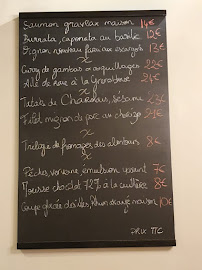 Saumon gravlax maison 14€
Burrata, caponata au basilic 12€
Oignon nouveau farci aux escargots 13€
x
Curry de gambas & coquillages 22€
Aile de raie à la Grenobloise 21€
x
Tataki de Charolais, sésame 23€
Filet mignon de porc au chorizo 21€
x
Trilogie de fromages des alentours 8€
x
Pêches, verveine, émulsion yaourt 7€
Mousse chocolat 72% à la cuillère 8€
Coupe glacée, Rhum orange maison 10€
PRIX TTC